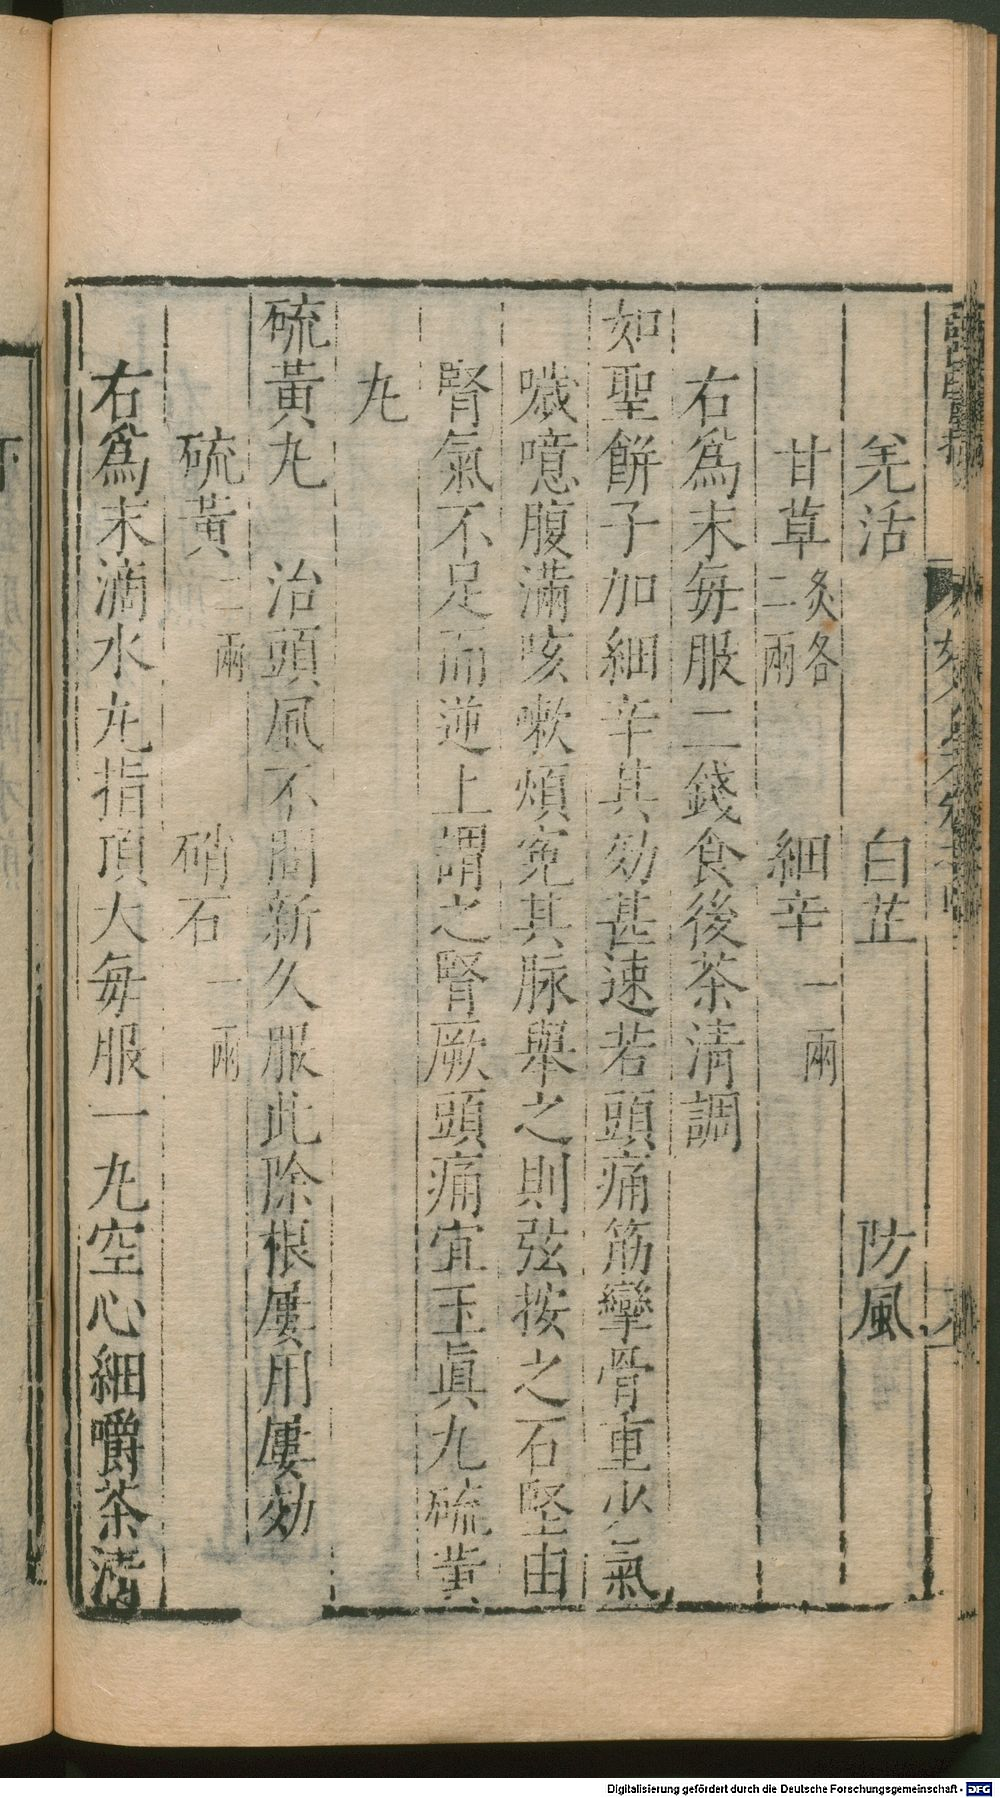 羌活 白芷 防風
甘草炙各二兩 細辛一兩
右爲末毎服二錢食後茶淸調
如聖餅子加細辛其効甚速若頭痛筋攣骨重少氣
噦噫腹滿咳嗽煩寃其脉舉之則弦按之石堅由
腎氣不足而逆上謂之腎厥頭痛宜玉眞丸硫黃
丸
硫黃丸 治頭風不問新久服此除根屢用屢効
硫黃二兩 硝石一兩
右爲末滴水丸指頂大毎服一丸空心細嚼茶淸
Digitalisierung gefördert durch die Deutsche Forschungsgemeinschaft - DFG